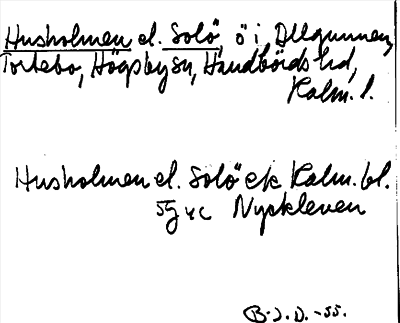 Husholmen el. Solö, ö i Allgunnen,
Tortebo, Högsby sn, Handbörds hd,
Kalm. l.
Husholmen el. Solö ek Kalm. bl.
5g vc Nyckleven
B.J.D. -55.